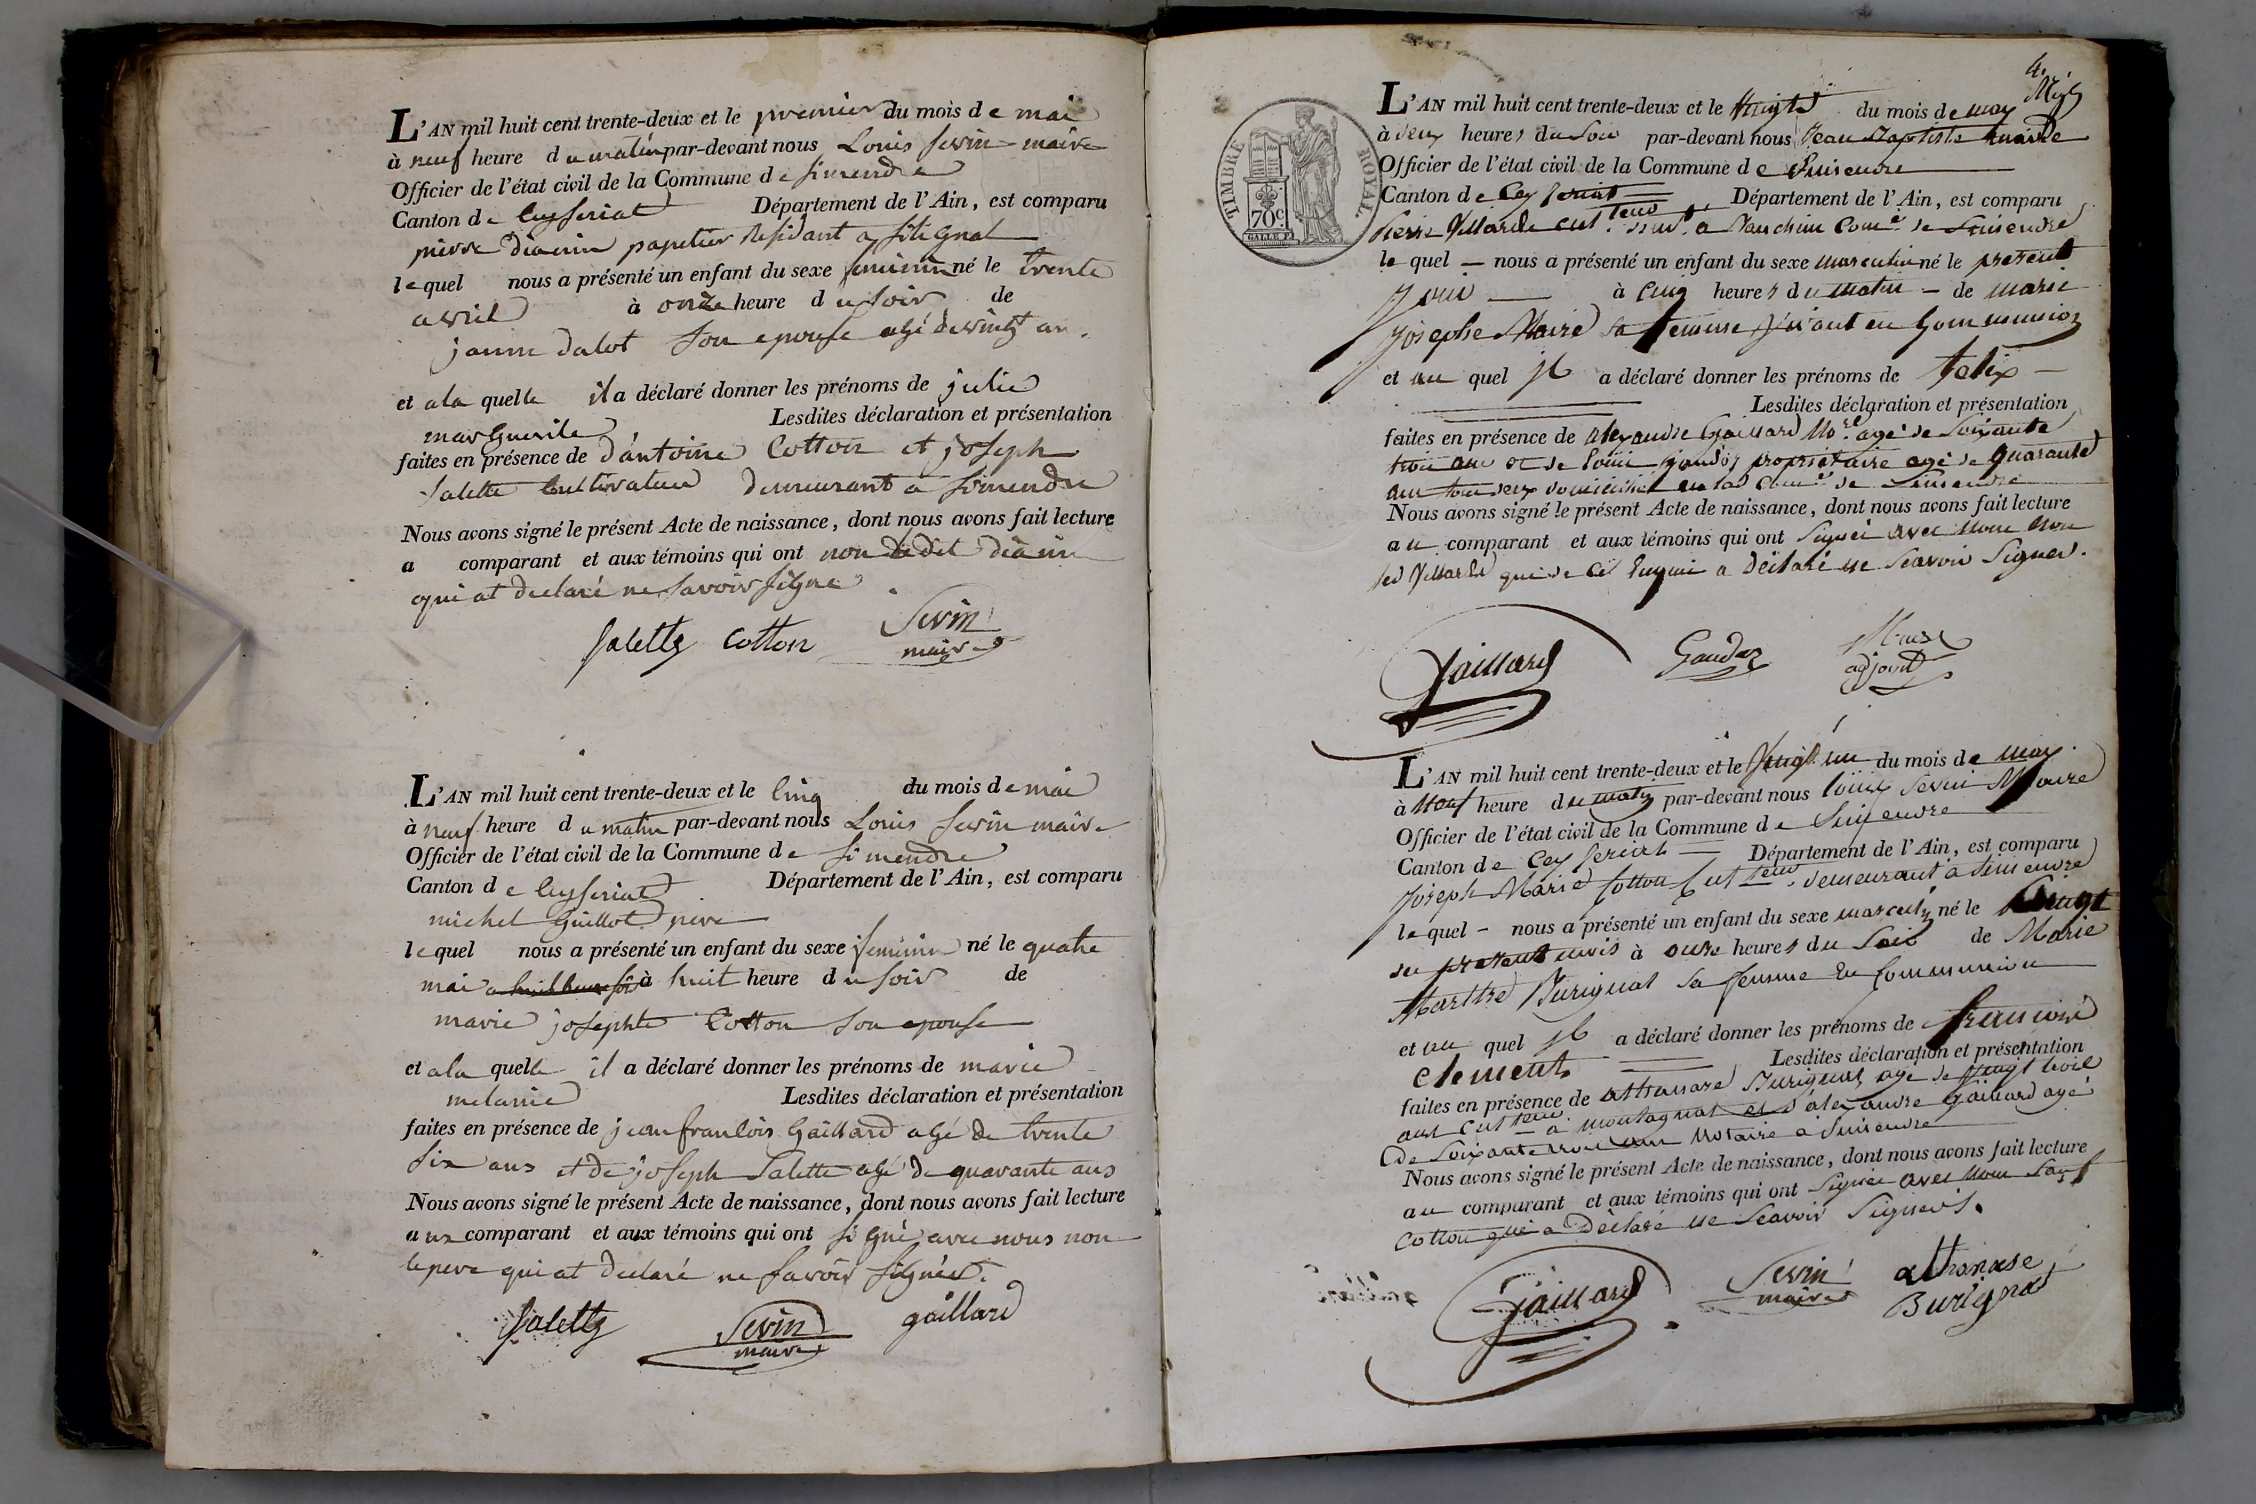 L'AN mil huit cent trente-deux et le premier du mois de mai
à neuf heure du matin par-devant nous Louis Sevin maire
Officier de l'état civil de la Commune de Simendre
Canton de Ceyseriat Département de l'Ain, est comparu
pierre papetier Residant a
lequel nous a présenté un enfant du sexe feminin né le trente
avril à onze heure du soir de
jeanne dalot Son epouse agé de vingt an.
et a la quelle il a déclaré donner les prénoms de julie
marguerite Lesdites déclaration et présentation
faites en présence de d'antoine Cotton et joseph
Salette Cultivateur demeurant a Simendre
Nous avons signé le présent Acte de naissance, dont nous avons fait lecture
a comparant et aux témoins qui ont non
qui at declaré ne savoir signe
Salette Cotton Sevin
maire
L'AN mil huit cent trente-deux et le Cinq du mois de mai
à neuf heure du matin par-devant nous Louis Sevin maire
Officier de l'état civil de la Commune de Simendre
Canton de Ceyseriat Département de l'Ain, est comparu
michel Guillot pere
lequel nous a présenté un enfant du sexe feminin né le quatre
mai à huit heure du soir de
marie josephte Cotton son epouse
et a la quelle il a déclaré donner les prénoms de marie
melanie Lesdites déclaration et présentation
faites en présence de jean françois Gaillard agé de trente
six ans et de joseph Salette agé de quarante ans
Nous avons signé le présent Acte de naissance, dont nous avons fait lecture
aux comparant et aux témoins qui ont signé avec nous non
le pere qui at declaré ne savoir signer.
Salette Sevin gaillard
maire
4.
TIMBRE ROYAL.
70c.
L'AN mil huit cent trente-deux et le Vingt du mois de may
à deux heures du Soir par-devant nous Jean Baptiste
Officier de l'état civil de la Commune de Simendre
Canton de Ceyseriat Département de l'Ain, est comparu
Pierre Villarde cult.teur a Comne de Simendre
le quel — nous a présenté un enfant du sexe masculin né le present
jour — à cinq heures du matin — de marie
josephe Maire sa femme vivant en Communion
et au quel il a déclaré donner les prénoms de felix —
Lesdites déclaration et présentation
faites en présence de alexandre Gaillard agé de soixante
trois ans et de louis proprietaire agé de quarante
ans tous deux domiciliés en la Comne de Simendre
Nous avons signé le présent Acte de naissance, dont nous avons fait lecture
au comparant et aux témoins qui ont signés avec nous non
led Villarde qui de ce enquis a déclaré ne Scavoir Signer.
Gaillard Gaudoz
adjoint
L'AN mil huit cent trente-deux et le Vingt un du mois de may
à Neuf heure du matin par-devant nous louis Sevin Maire
Officier de l'état civil de la Commune de Simendre
Canton de Ceyseriat — Département de l'Ain, est comparu
Joseph Marie Cotton Cultteur demeurant a Simendre
le quel — nous a présenté un enfant du sexe masculin né le Vingt
du present mois à onze heures du Soir de Marie
Marthe Burignat sa femme en Communion
et au quel il a déclaré donner les prénoms de françois
clement Lesdites déclaration et présentation
faites en présence de athanase Burignat agé de vingt trois
ans Cultteur a montagnat et d'alexandre Gaillard agé
de Soixante trois ans Notaire a Simendre
Nous avons signé le présent Acte de naissance, dont nous avons fait lecture
au comparant et aux témoins qui ont signés avec nous Sauf
Cotton qui a Déclaré ne Scavoir Signer.
Gaillard Sevin athanase
maire Burignat